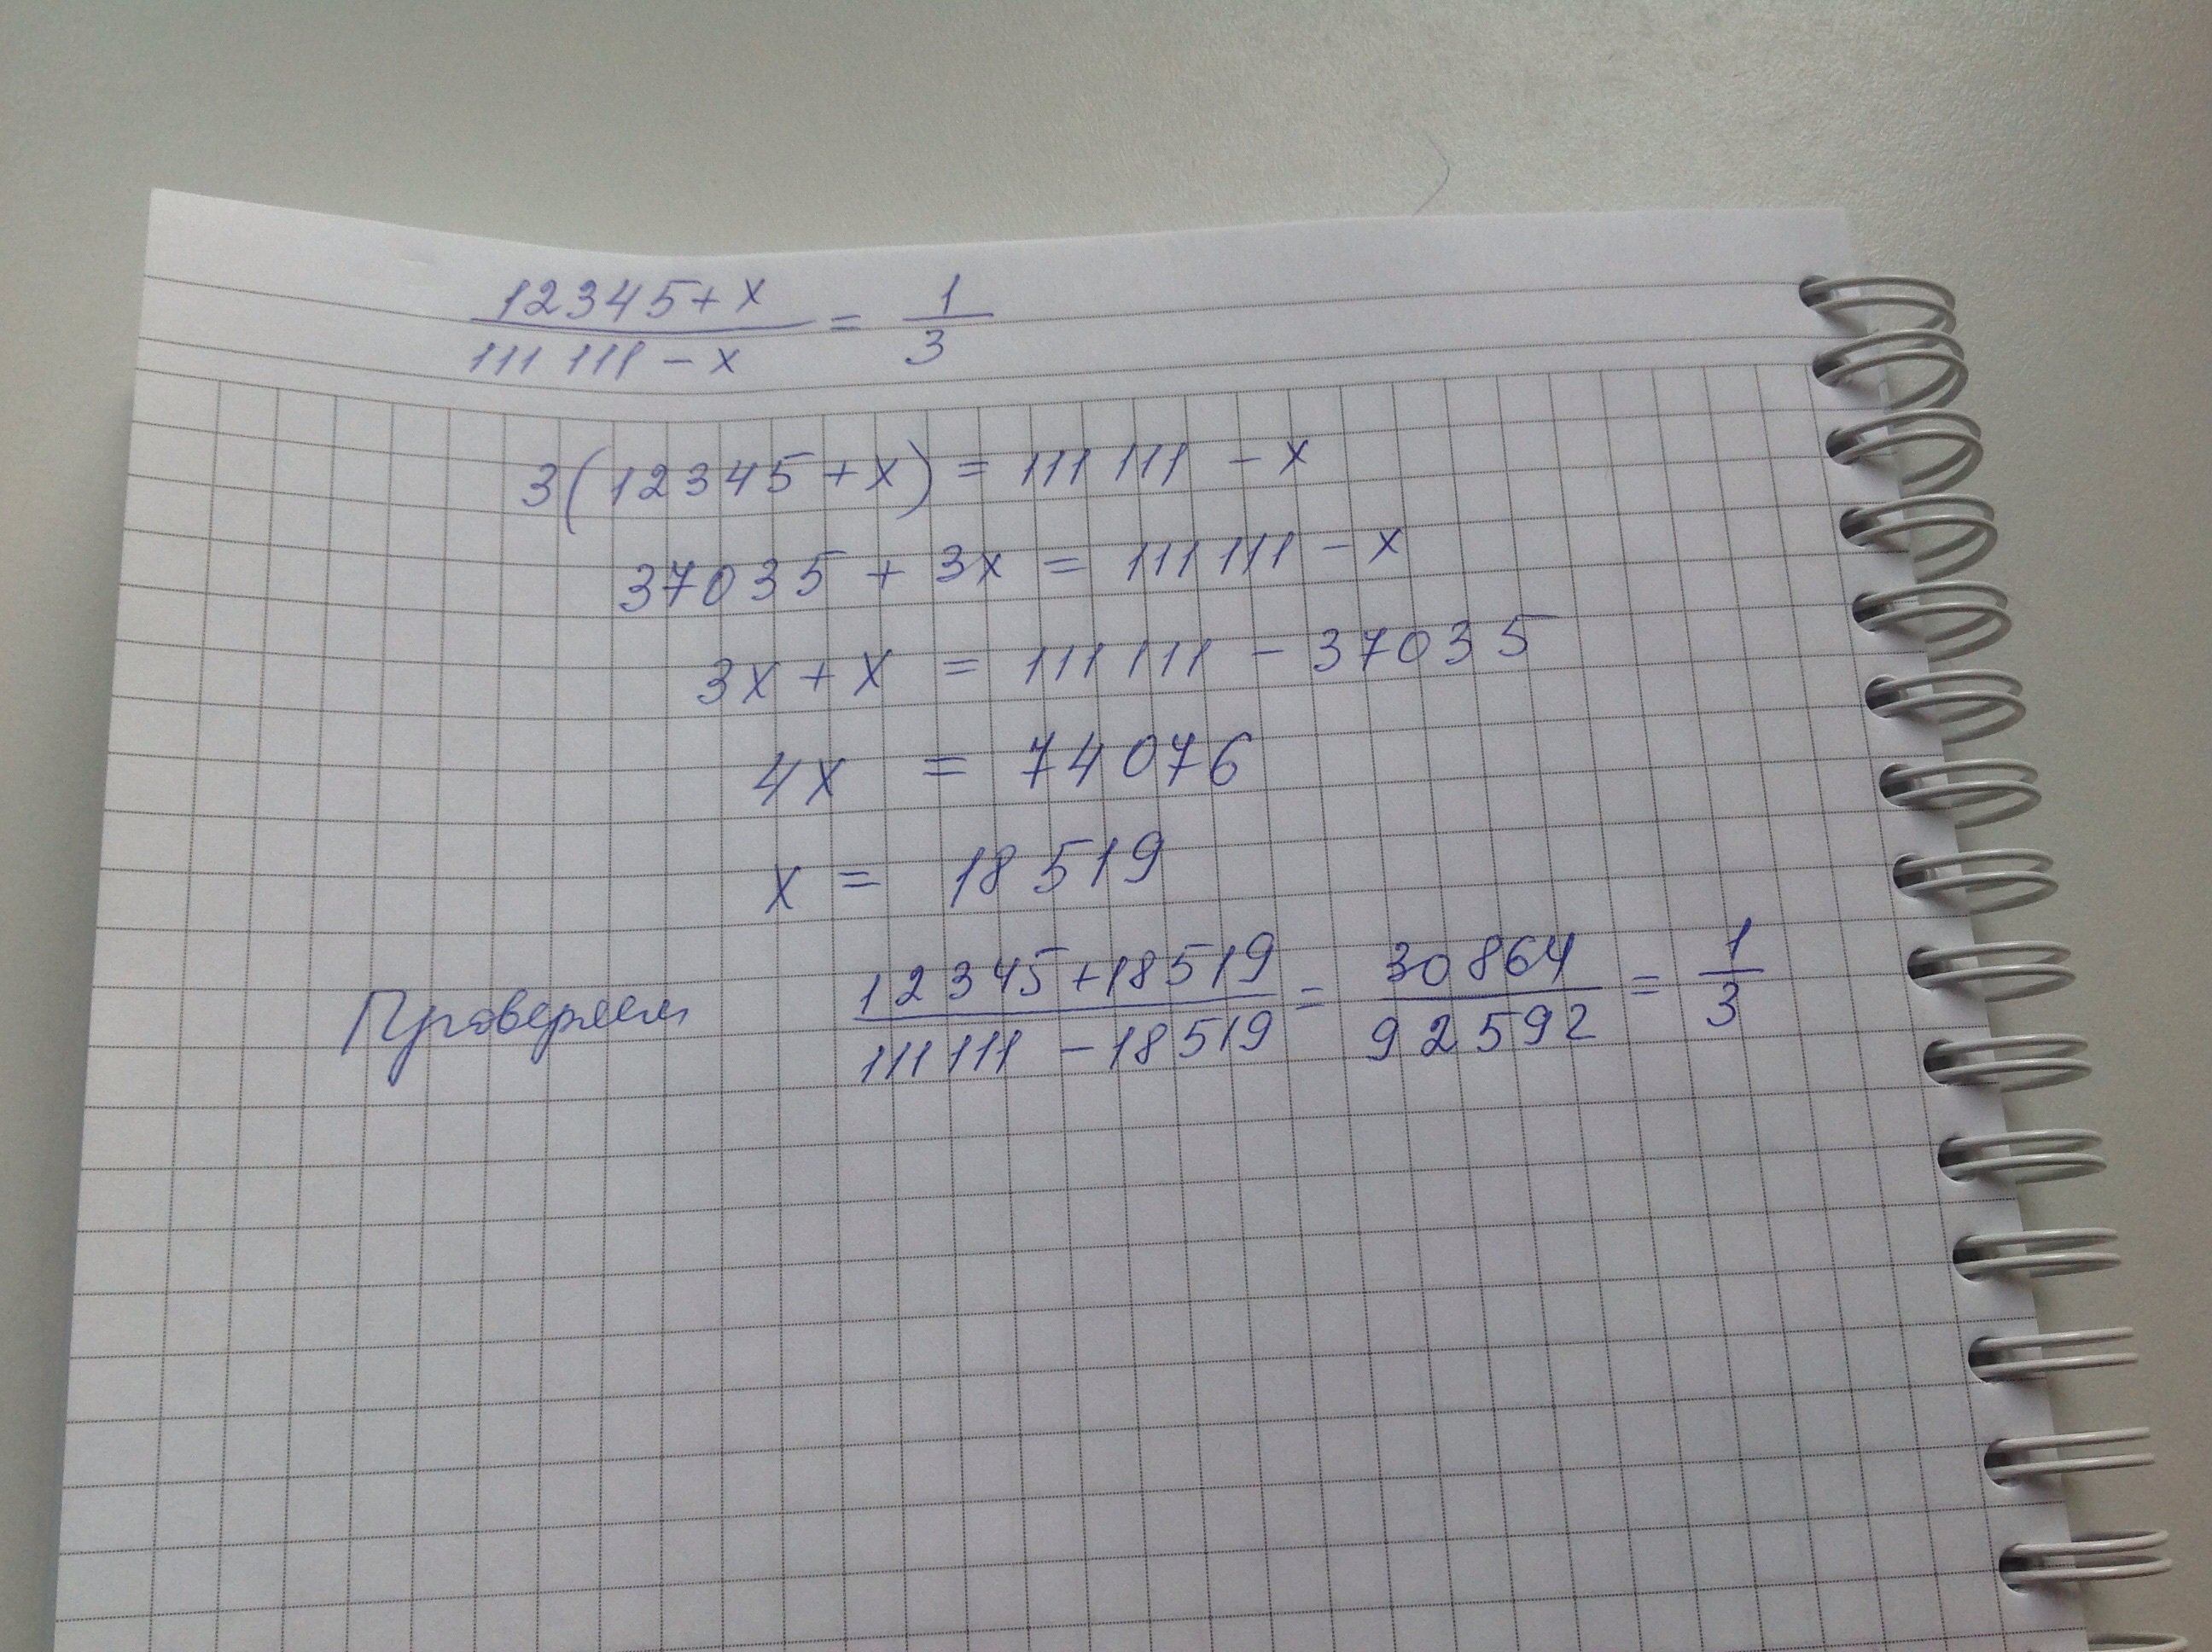 12345+x / 111 111 - x = 1/3
3(12345+x) = 111 111 - x
37035 + 3x = 111 111 - x
3x + x = 111 111 - 37035
4x = 74076
x = 18519
Проверяем 12345+18519 / 111 111 - 18519 = 30864 / 92592 = 1/3